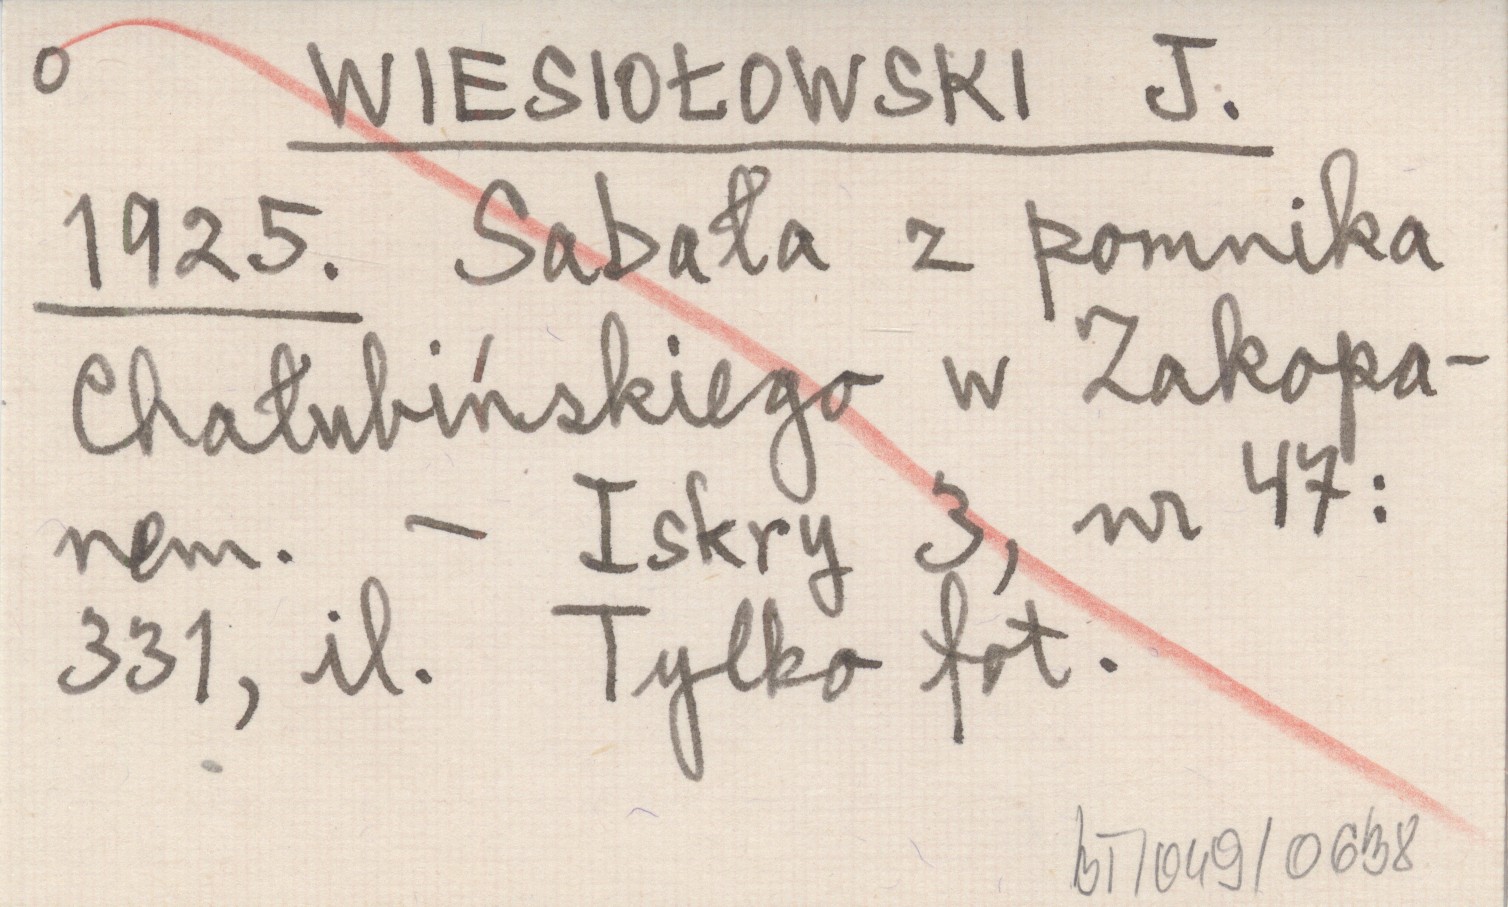 o WIESIOŁOWSKI J.
1925. Sabała z pomnika
Chałubińskiego w Zakopa-
nem. – Iskry 3, nr 47:
331, il. Tylko fot.
BT/049/0638